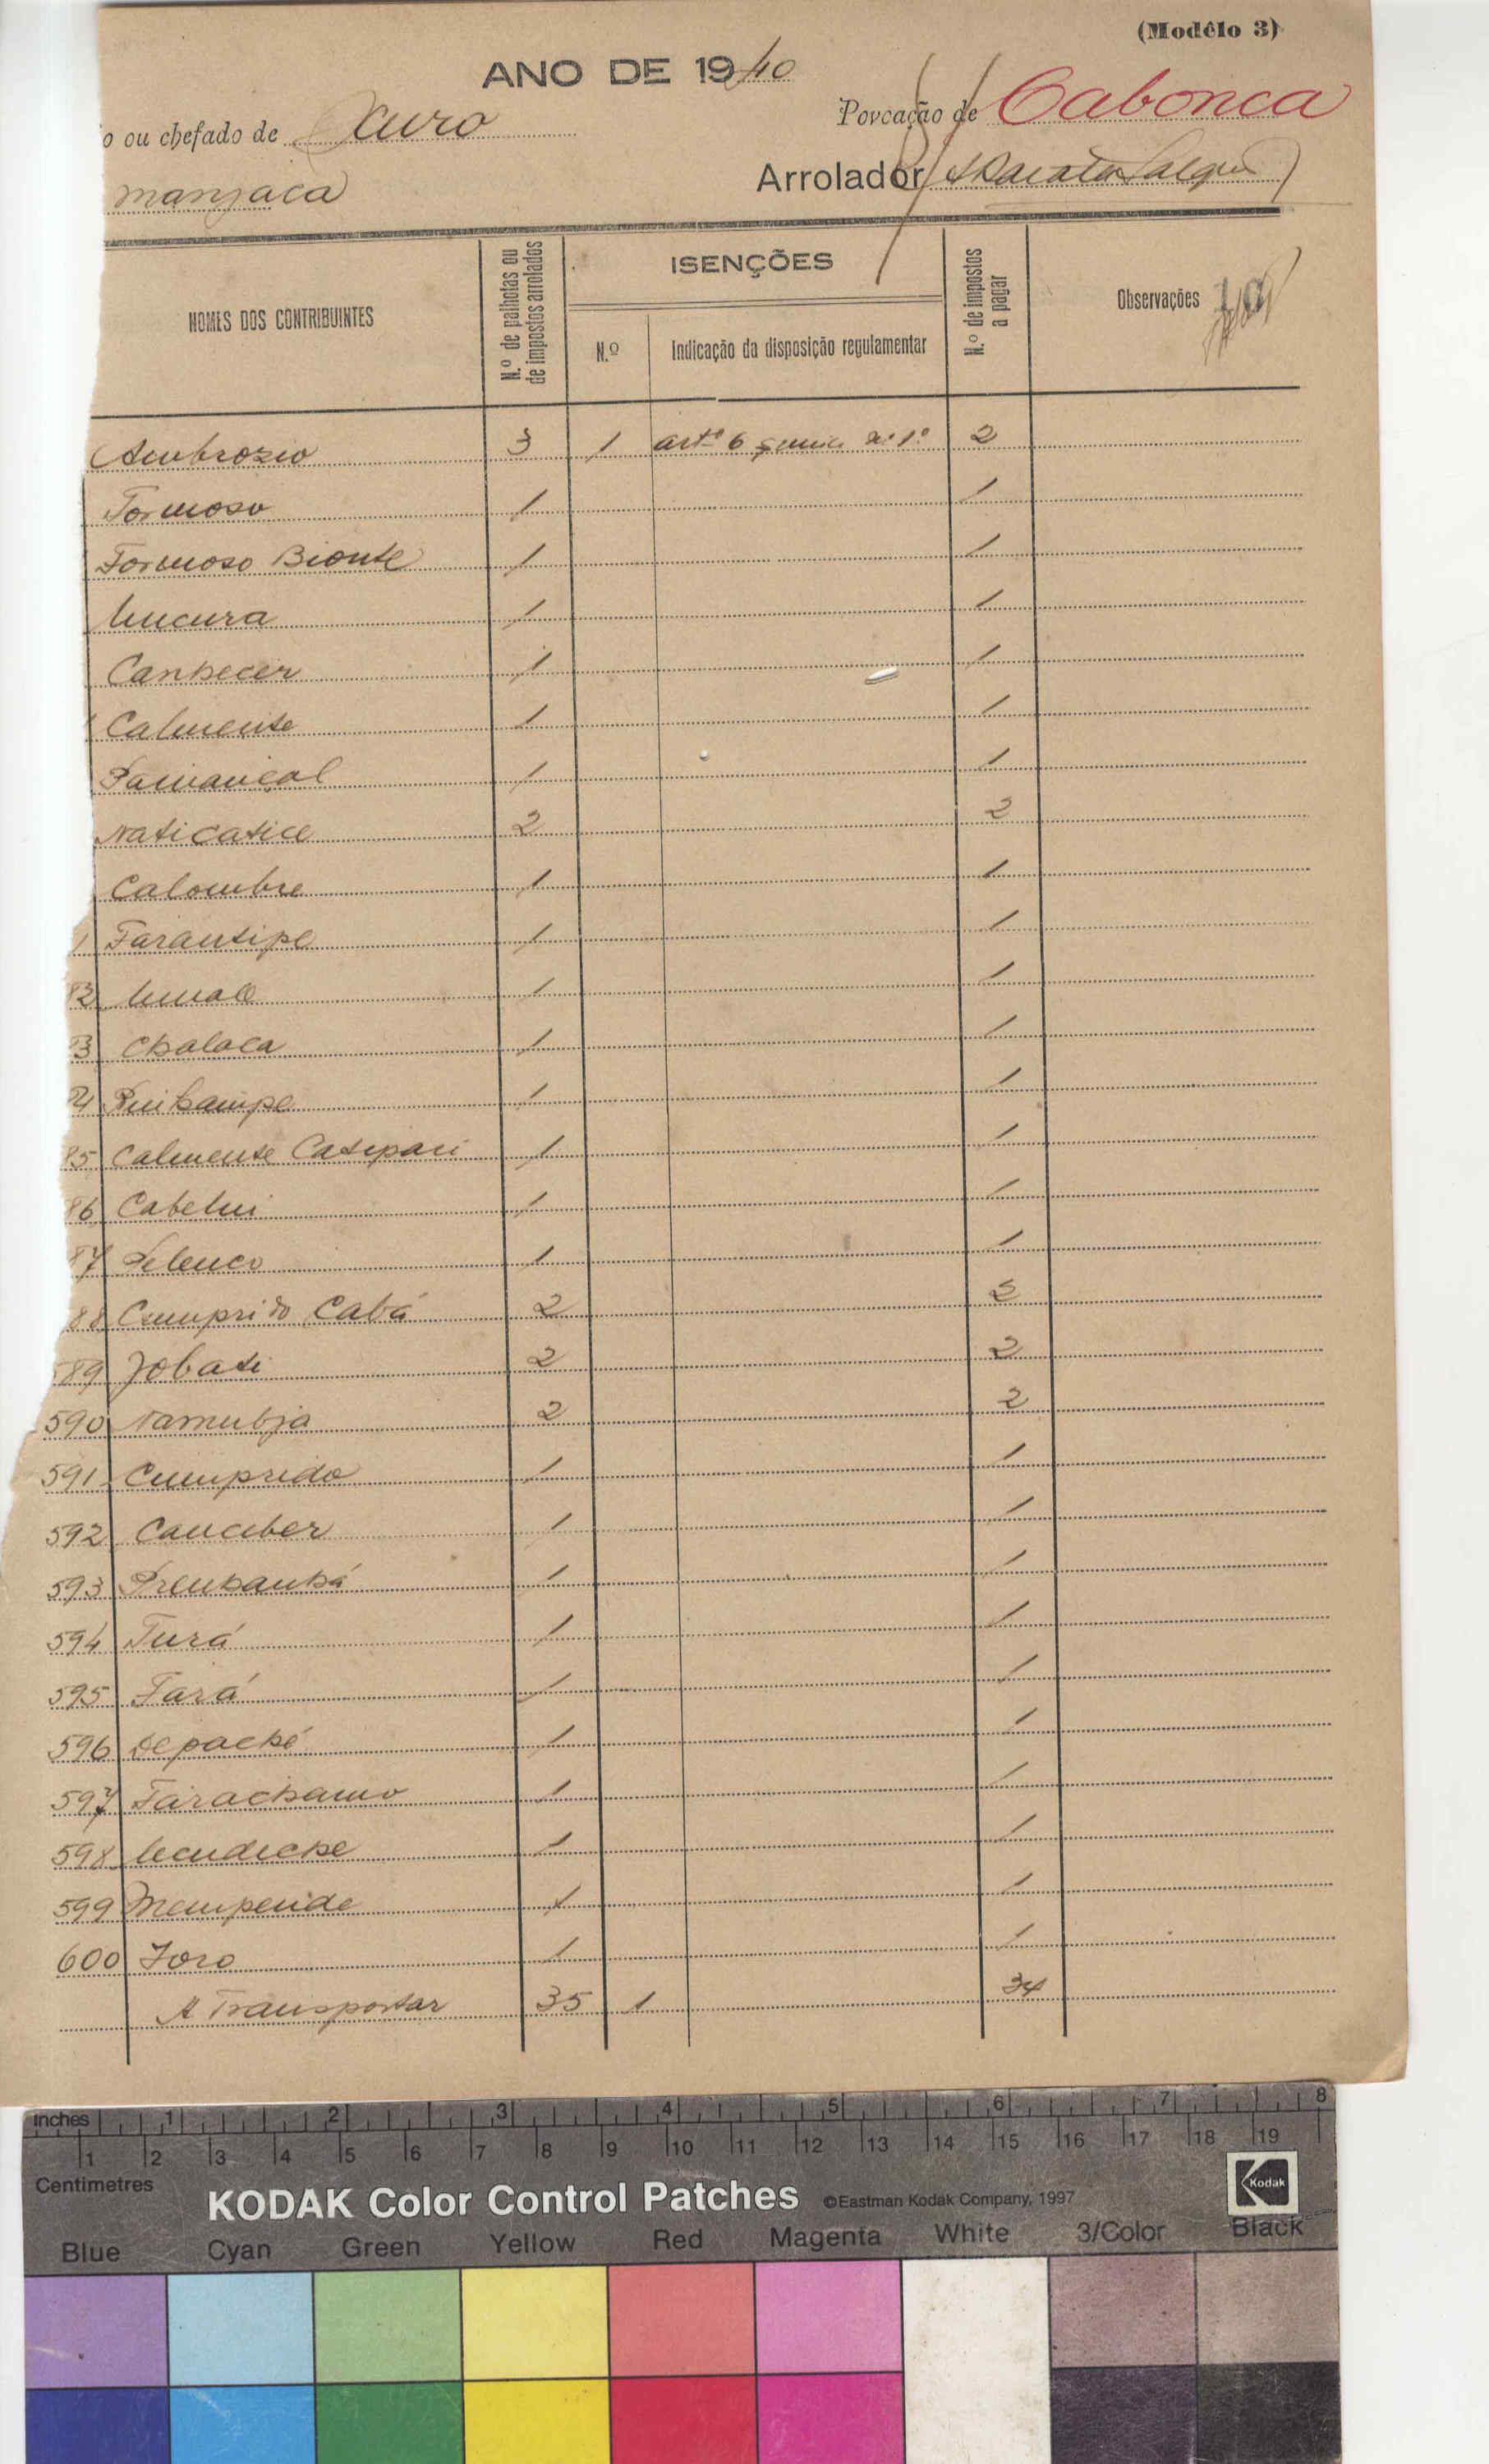 (Modêlo 3)
ANO DE 1940
o ou chefado de Churo
Povoação de Cabonca
manjaca
Arrolador
NOMES DOS CONTRIBUINTES
N.º de palhotas ou de impostos arrolados
ISENÇÕES
N.º
Indicação da disposição regulamentar
N.º de impostos a pagar
Observações
Ambrozio 3 1 artº 6 § unico nº 1º 2
Formoso 1 1
Formoso Bionte 1 1
Umcura 1 1
Canhecer 1 1
Calmente 1 1
Pamançal 1 1
Naticatice 2 2
Calombre 1 1
1 Farantipe 1 1
82 1 1
83 Chalaca 1 1
84 1 1
85 Calmente Catipari 1 1
86 Cabelui 1 1
87 Pelenco 1 1
88 Cumprido Cabá 2 2
589 Jobati 2 2
590 Namubja 2 2
591 Cumprido 1 1
592 Cauciber 1 1
593 Prenhanhá 1 1
594 Turá 1 1
595 Fará 1 1
596 Depaché 1 1
597 Farachamo 1 1
598 1 1
599 Mempende 1 1
600 Joro 1 1
A Transportar 35 1 34
inches 1 2 3 4 5 6 7 8
1 2 3 4 5 6 7 8 9 10 11 12 13 14 15 16 17 18 19
Centimetres
KODAK Color Control Patches ©Eastman Kodak Company, 1997 Kodak
Blue Cyan Green Yellow Red Magenta White 3/Color Black